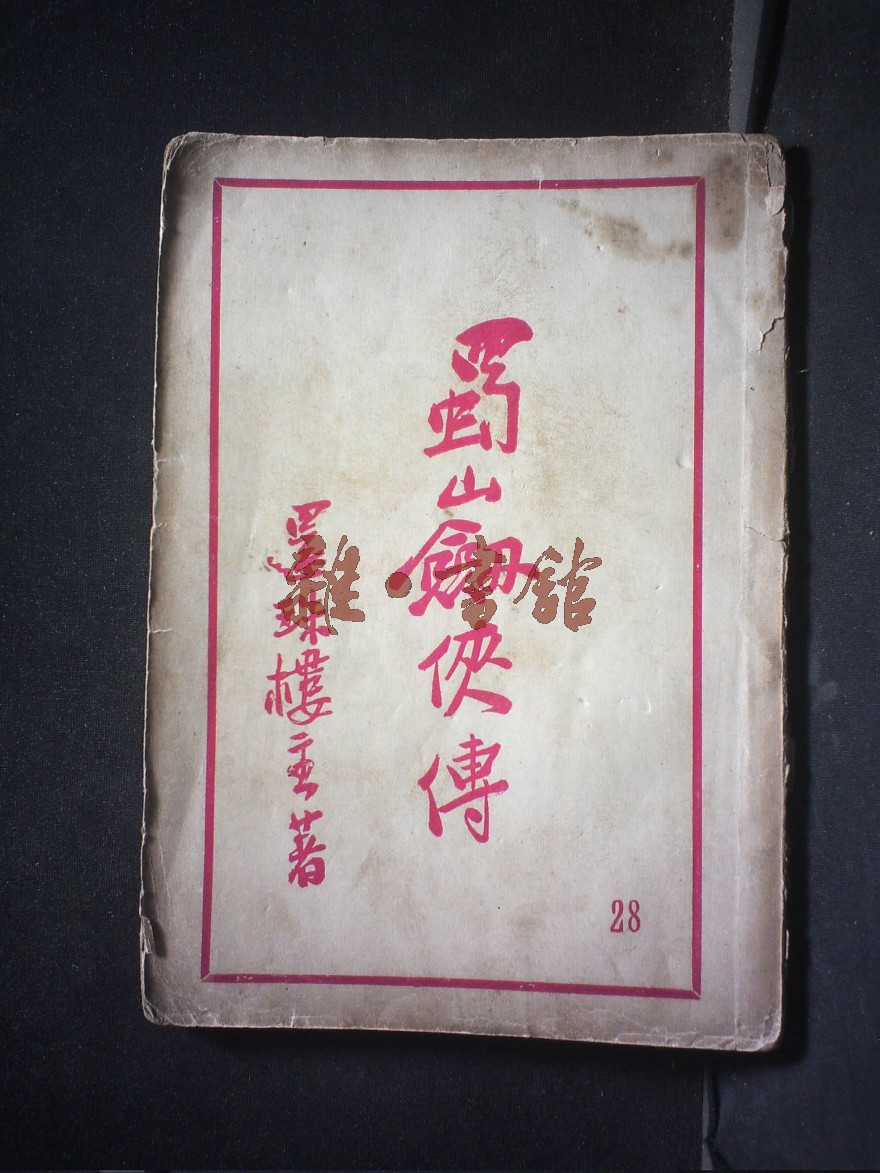 蜀山劍俠傳
還珠樓主著
28
雜·書舘